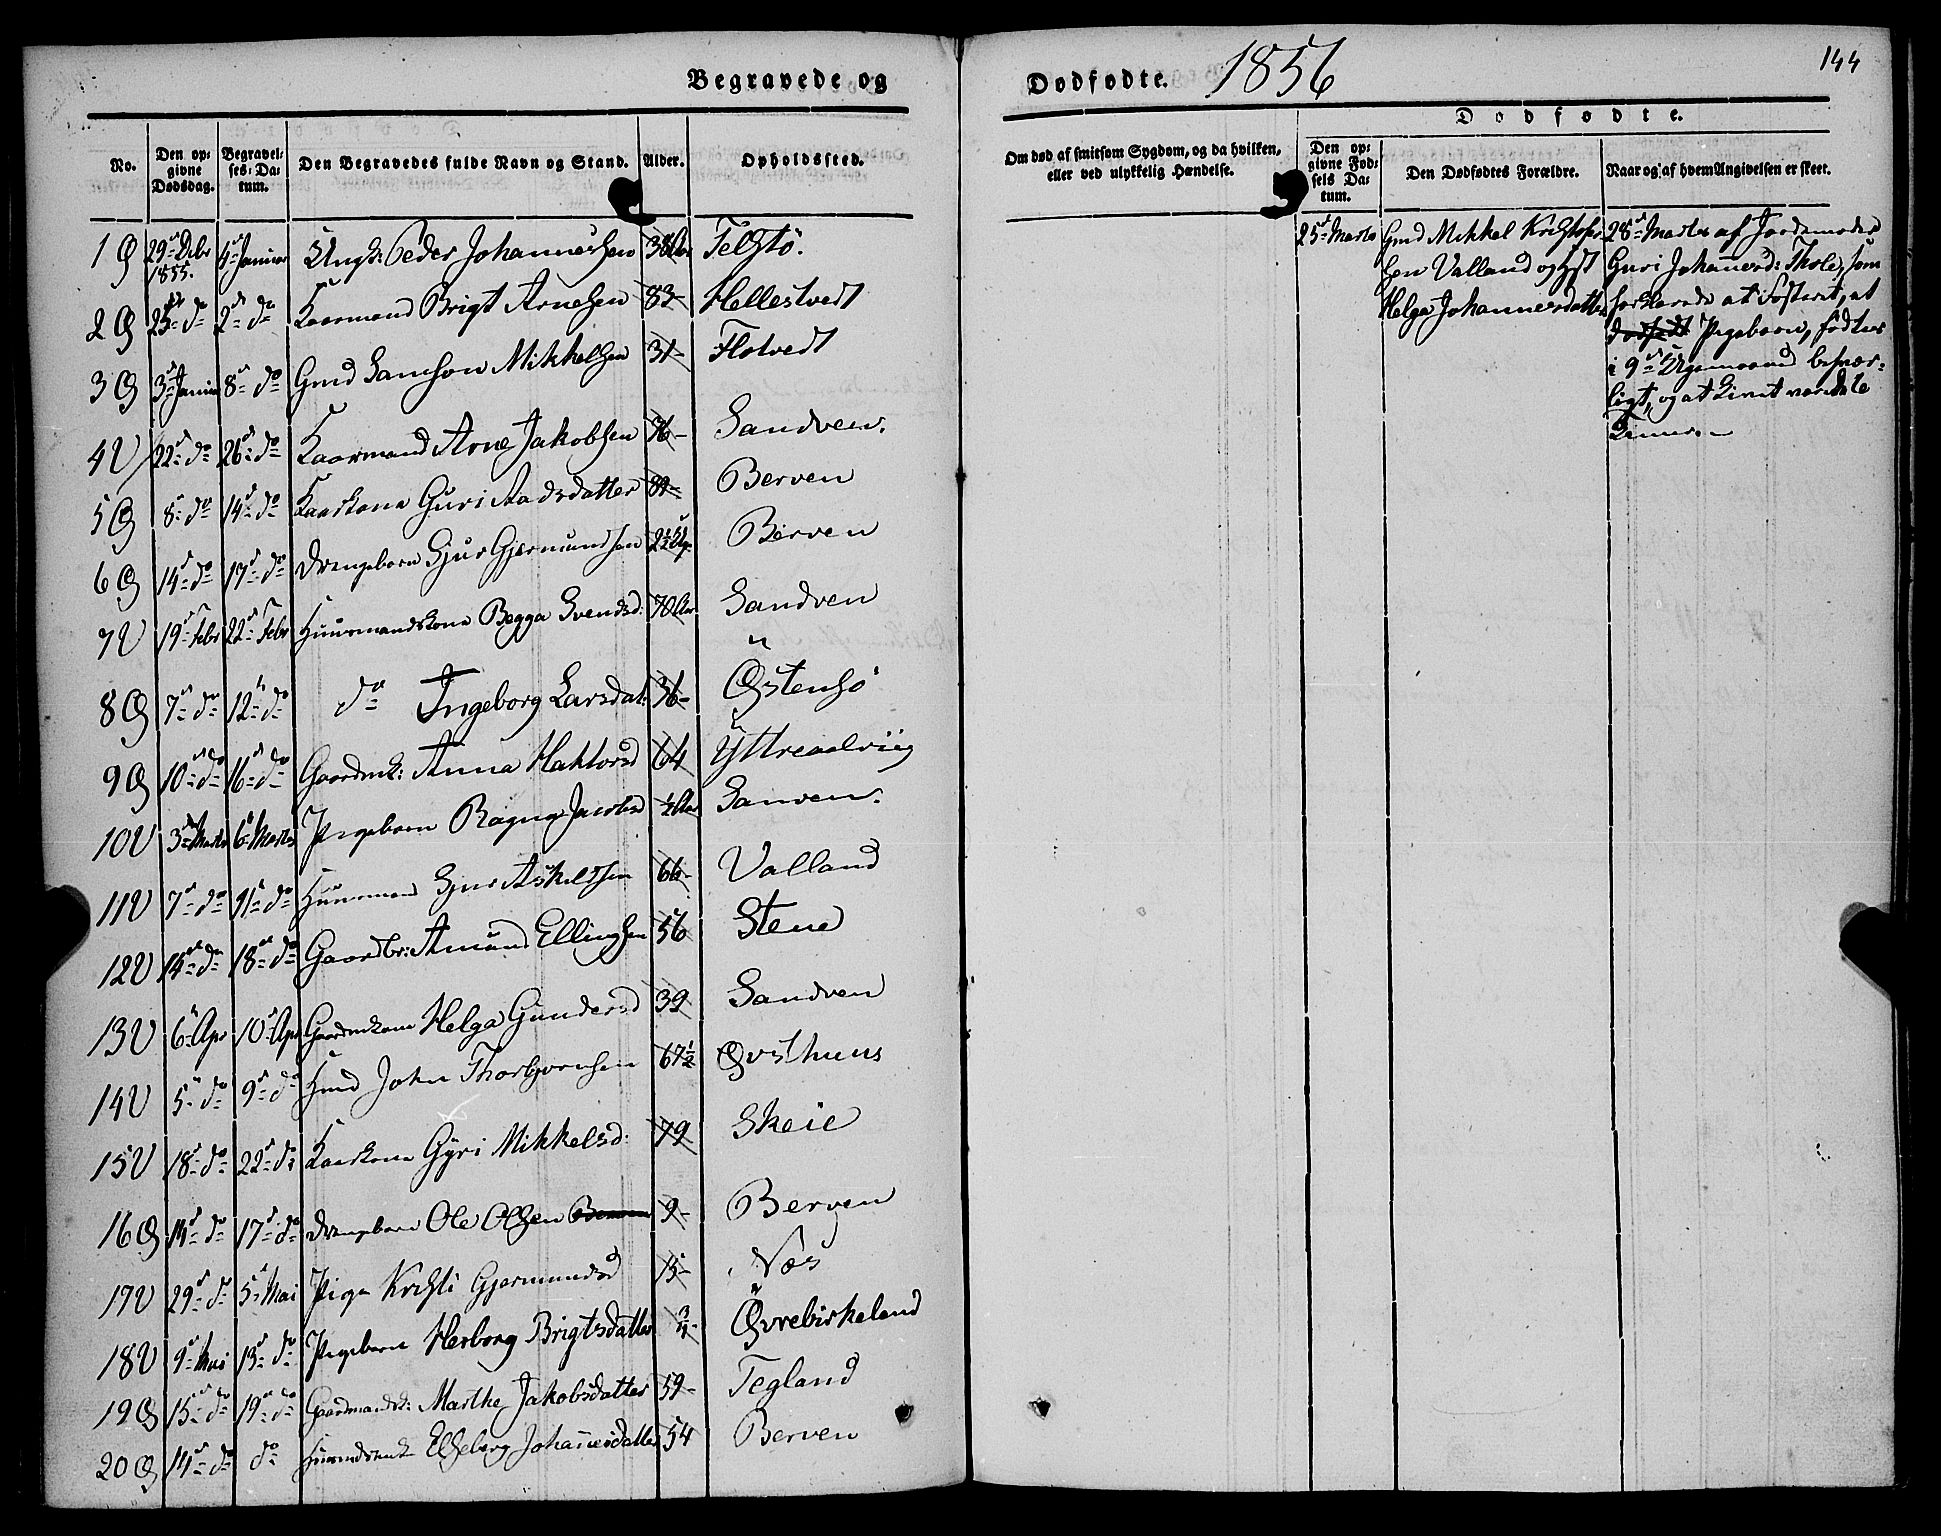 Begravede og
No.
Den op-
givne
Dødsdag.
Begravel-
ses-Da-
tum.
Den Begravedes fulde Navn og Stand.
Alder.
Opholdssted.
1 Ø 29de Debr 1855. 4de Januar Ungk: Peder Johannessen Aar Telstø.
2 Ø 25de do 2de do Kaarmand Brigt Arnesen 83- Hellestvedt
3 Ø 3de Januar 8de do Gmd Samson Mikkelsen 31- Flotvedt
4 V 22de do 26de do Kaarmand Arne Jakobsen 76- Sandven.
5 Ø 8de do 14de do Kaarkone Guri Aadsdatter 89- Berven
6 Ø 14de do 17de do Drengebarn Sjur Gjermundsen 2½ Berven
7 V 19de Febr 22de Febr Huusmandskone Begga Svendsd: 70 Aar Sandven
8 Ø 7de do 12te do do Ingeborg Larsdat: 36- Østensø
9 Ø 10de do 16de do Anna Haktorsd 64 Yttreaalviig
10 V 3de Marts 6te Marts Pigebarn Ragna Jacobsd ½ Aar Sanven.
11 V 7de do 11te do Huusmand Sjur Askeldsen 66- Valland
12 V 14de do 18de do Gaardbr: Amund Ellingsen 56 Stene
13 V 6te Apr 10de Apr Gaardmkone Helga Gundersd 39 Sandven
14 V 5te do 9de do Hmd John Thorbjørnsen 67½ Øvsthuus
15 V 18de do 22de do Kaarkone Gyri Mikkelsd: 79 Skeie
16 Ø 14de do 17de do Drengebarn Ole Olsen Berven 9- Berven
17 V 29de do 5te Mai Pige Kristi Gjermundsd 15- Næs
18 V 9de Mai 13de do Pigebarn Herborg Brigtsdatter ¾- Øvrebirkeland
19 Ø 15de do 19de do Gaardmandsk: Marthe Jakobsdatter 59- Tegland
20 Ø 14de do do Elseberg Johannesdatter 54 Berven
Dødfødte. 1856
144
Dødfødte.
Om død af smitsom Sygdom, og da hvilken,
eller ved ulykkelig Hændelse.
Den op-
givne Fød-
sels Da-
tum.
Den Dødfødtes Forældre.
Naar og af hvem Angivelsen er skeet.
25de Marts Gmd Mikkel Kristofer-
sen Valland og Hst
Helga Johannesdatter
28de Marts af Jordemoder
Guri Johannesd: Thole, som
forklarede at Fosteret, et
dødfødt Pigebarn, fødtes
i 9de Ugemaaned besvær-
ligt, og at Livet varede
Timer.-